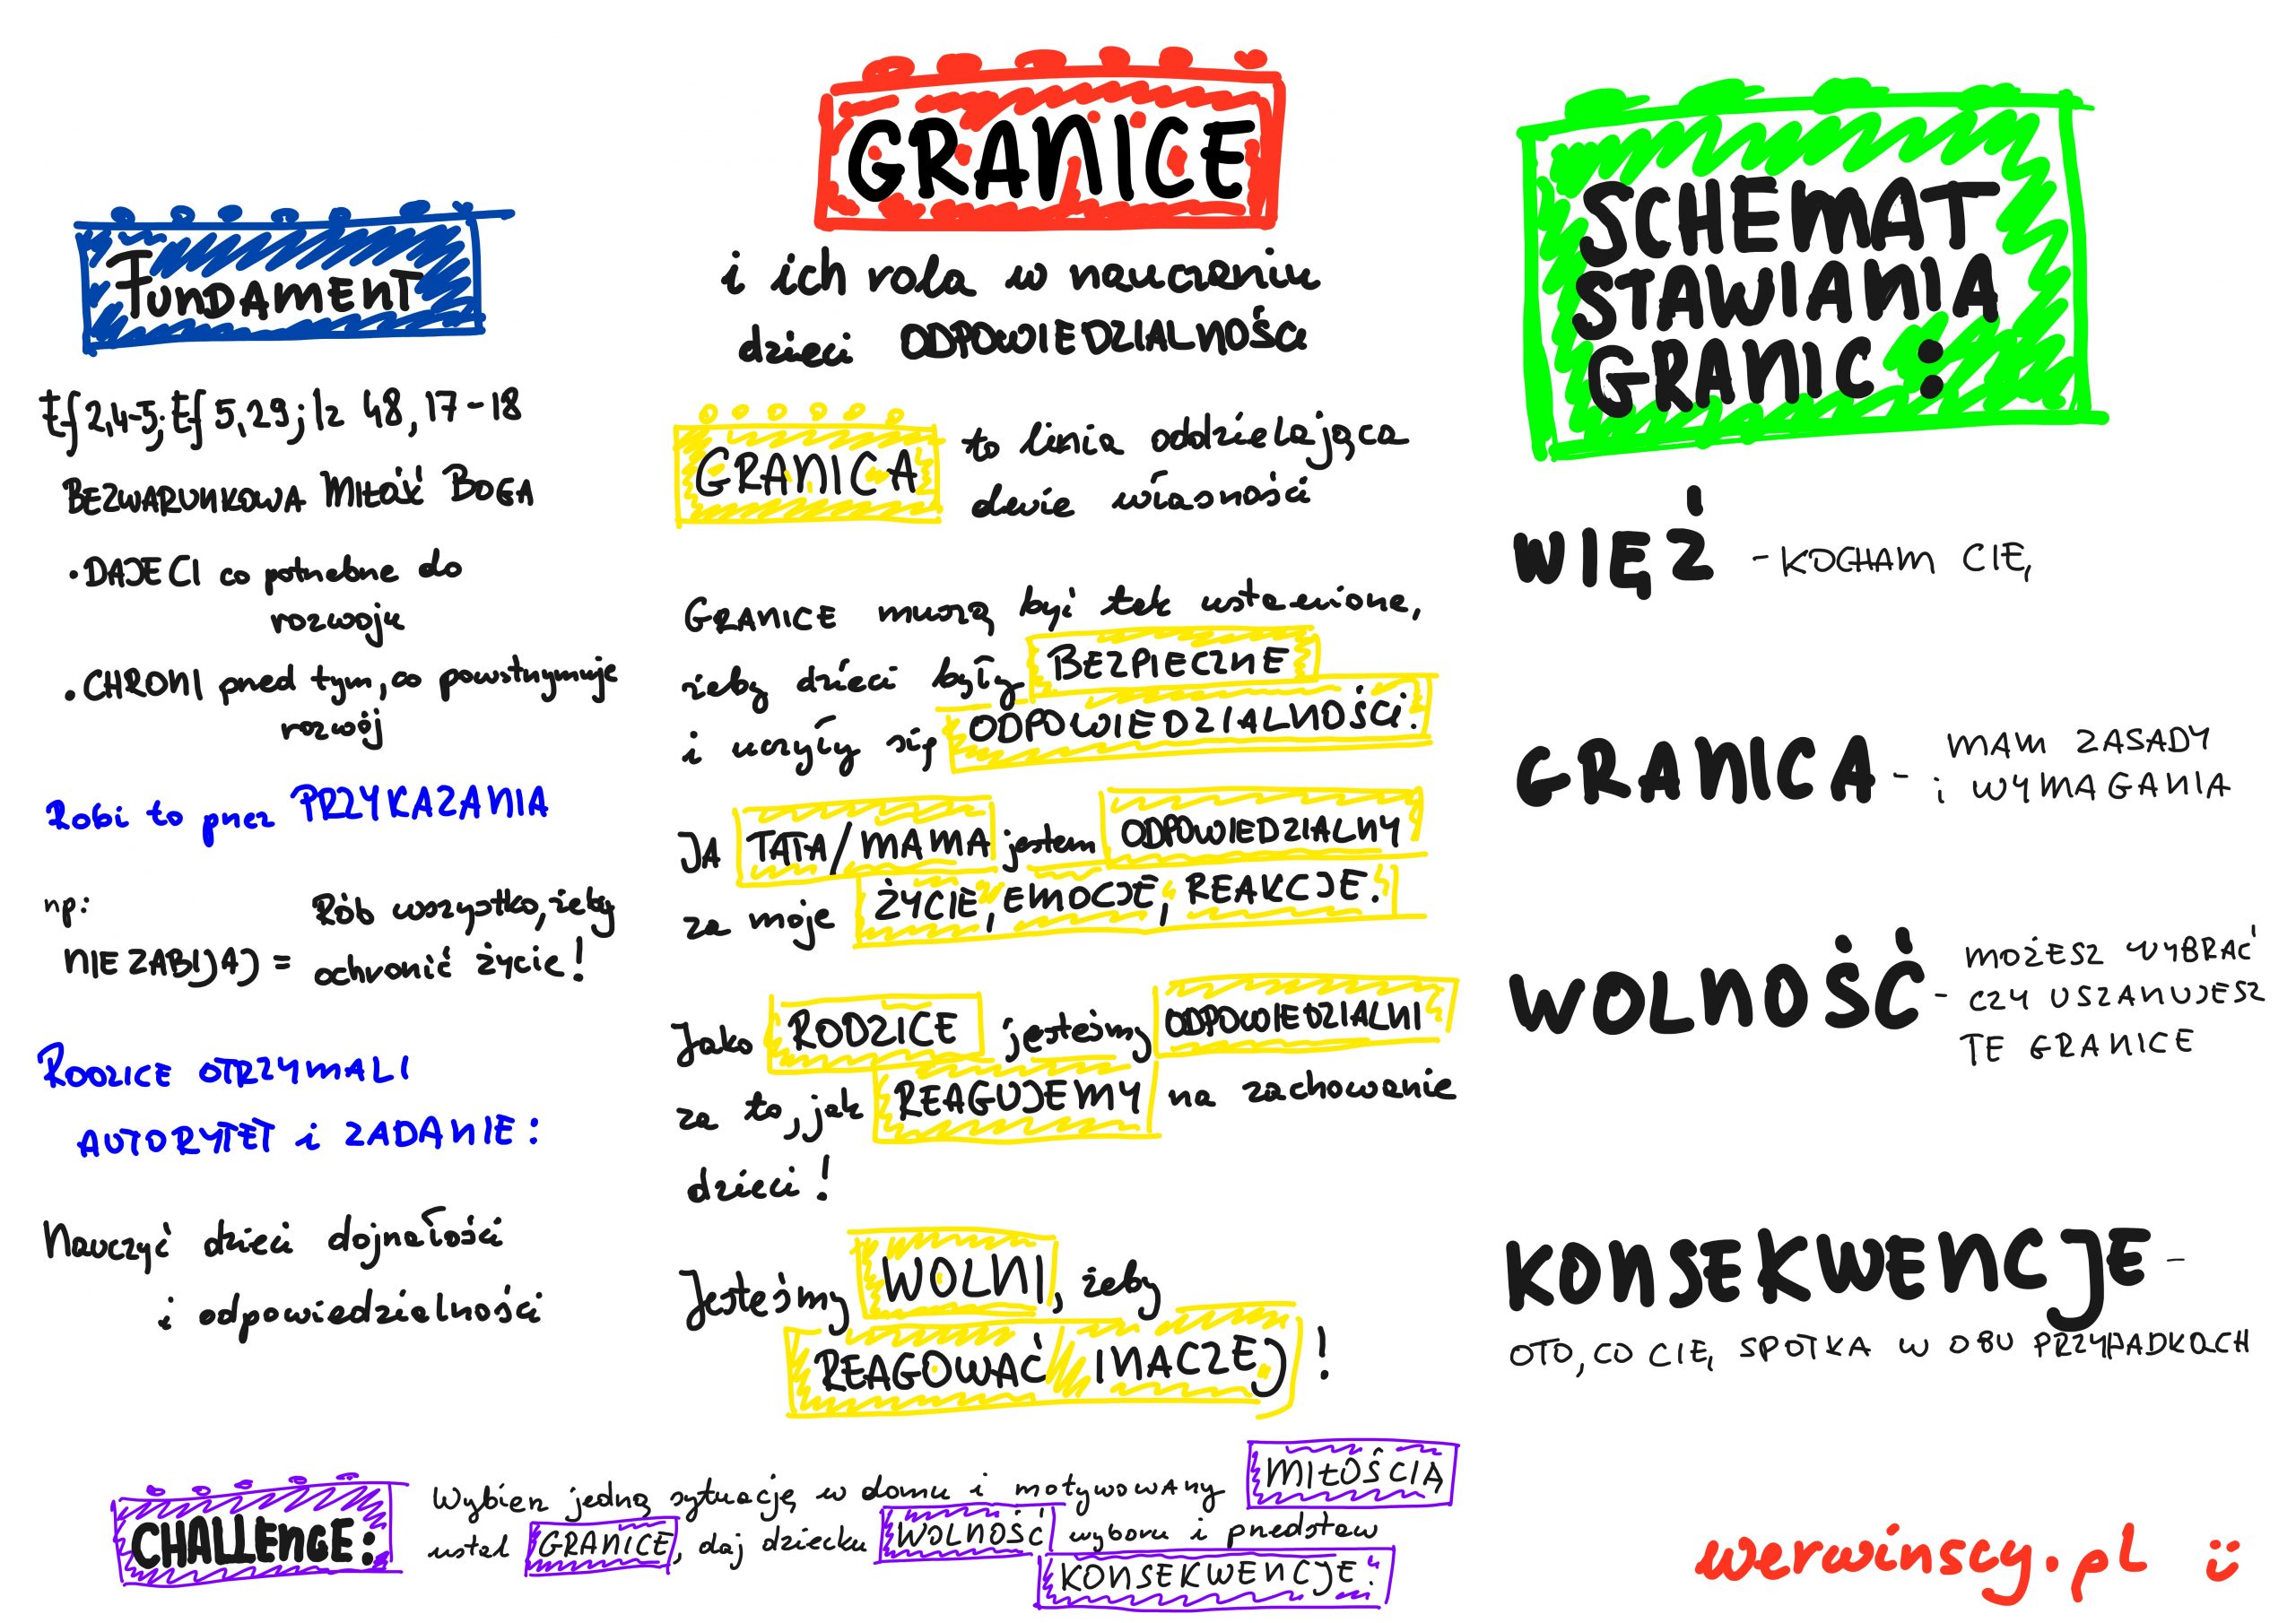 FUNDAMENT
Ef 2,4-5; Ef 5,29; Iz 48, 17-18
BEZWARUNKOWA MIŁOŚĆ BOGA
• DAJE CI co potrzebne do
rozwoju
• CHRONI przed tym, co powstrzymuje
rozwój
Robi to przez PRZYKAZANIA
np:
NIE ZABIJAJ = Rób wszystko, żeby
ochronić życie!
RODZICE OTRZYMALI
AUTORYTET i ZADANIE:
Nauczyć dzieci dojrzałości
i odpowiedzialności
GRANICE
i ich rola w nauczaniu
dzieci ODPOWIEDZIALNOŚCI
GRANICA to linia oddzielająca
dwie własności
GRANICE muszą być tak ustawione,
żeby dzieci były BEZPIECZNE
i uczyły się ODPOWIEDZIALNOŚCI.
JA TATA/MAMA jestem ODPOWIEDZIALNY
za moje ŻYCIE, EMOCJE, REAKCJE.
Jako RODZICE jesteśmy ODPOWIEDZIALNI
za to, jak REAGUJEMY na zachowanie
dzieci!
Jesteśmy WOLNI, żeby
REAGOWAĆ INACZEJ!
SCHEMAT
STAWIANIA
GRANIC:
WIĘŹ - KOCHAM CIĘ
GRANICA - MAM ZASADY
i WYMAGANIA
WOLNOŚĆ - MOŻESZ WYBRAĆ
CZY USZANUJESZ
TE GRANICE
KONSEKWENCJE -
OTO, CO CIĘ SPOTKA W OBU PRZYPADKACH
CHALLENGE:
Wybierz jedną sytuację w domu i motywowany MIŁOŚCIĄ
ustal GRANICE, daj dziecku WOLNOŚĆ wyboru i przedstaw
KONSEKWENCJE.
werwinscy.pl